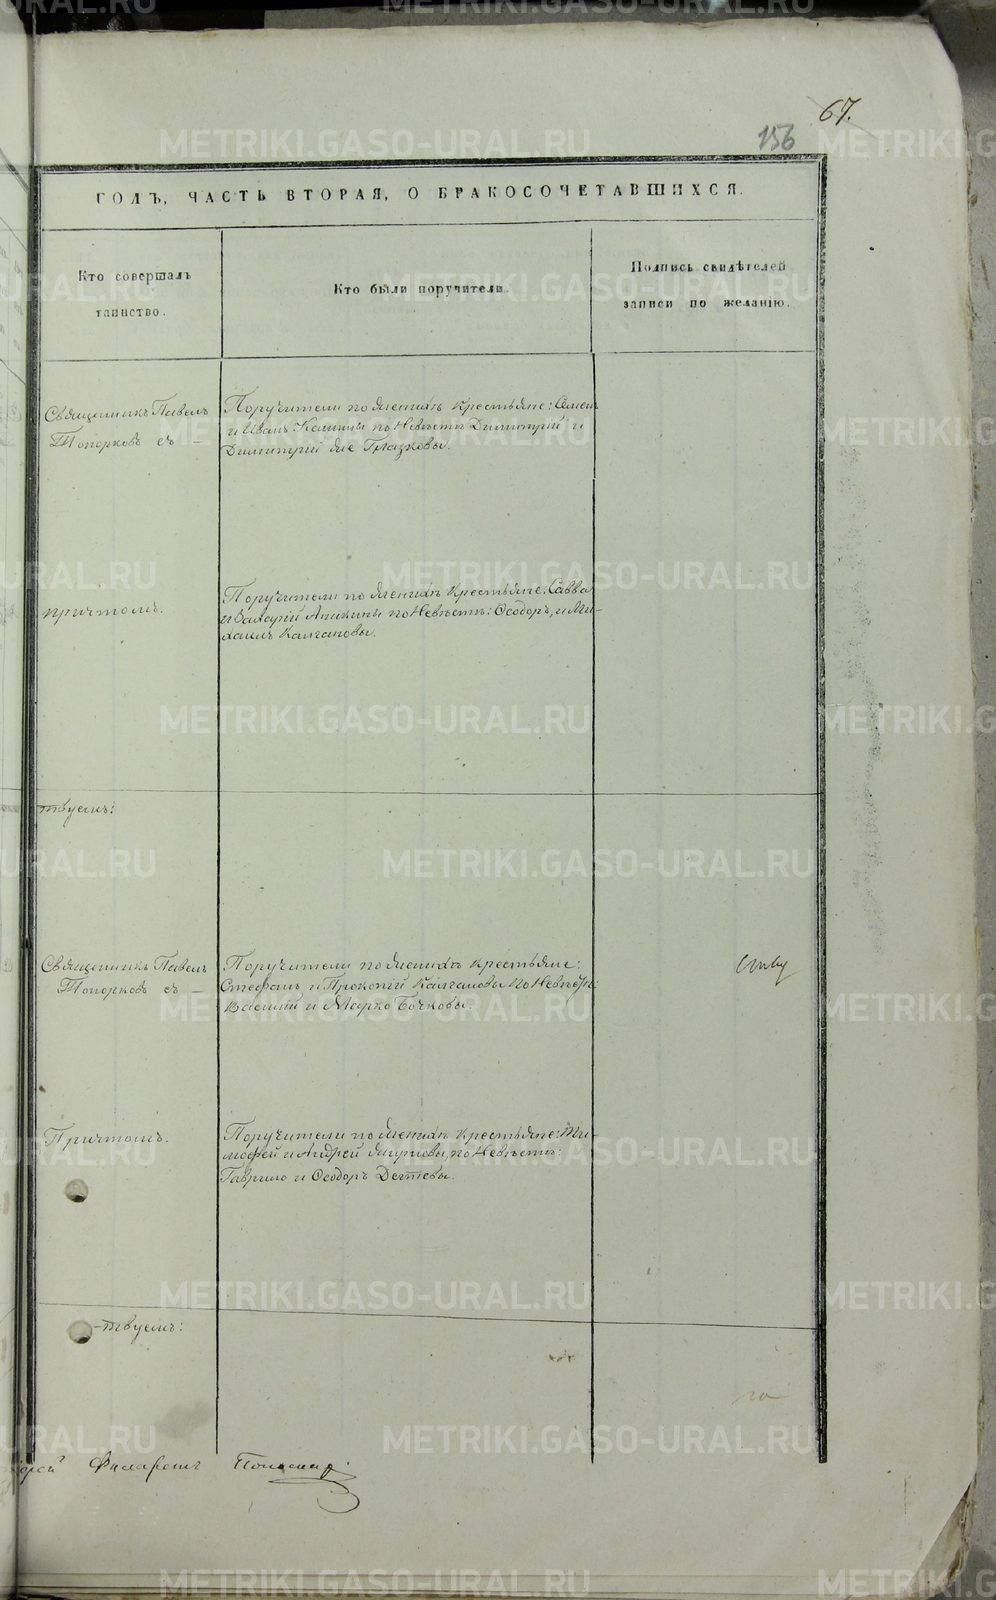 67.
156
ГОДЪ, ЧАСТЬ ВТОРАЯ, О БРАКОСОЧЕТАВШИХСЯ.
Кто совершалъ
таинство.
Кто были поручители.
Подпись свидѣтелей
записи по желанію.
Священникъ Павелъ
Топорковъ съ –
Поручители по женихѣ Крестьяне: Семенъ
и Иванъ по Невѣстѣ Димитрій и
Димитрій же Глазковы.
причтомъ.
Поручители по женихѣ Крестьяне: Савва
и Валерій Аникины по Невѣстѣ: Ѳеодоръ, и Ми-
хаилъ Калгановы.
твуемъ:
Священникъ Павелъ
Топорковъ съ –
Поручители по женихѣ крестьяне:
Стефанъ и Прокопій Калгановы по Невѣстѣ:
Василій и Марко Бочковы.
Причтомъ.
Поручители по женихѣ Крестьяне: Ти-
мофей и Андрей по Невѣстѣ:
Гаврило и Ѳеодоръ Дегтевы.
-твуемъ:
METRIKI.GASO-URAL.RU